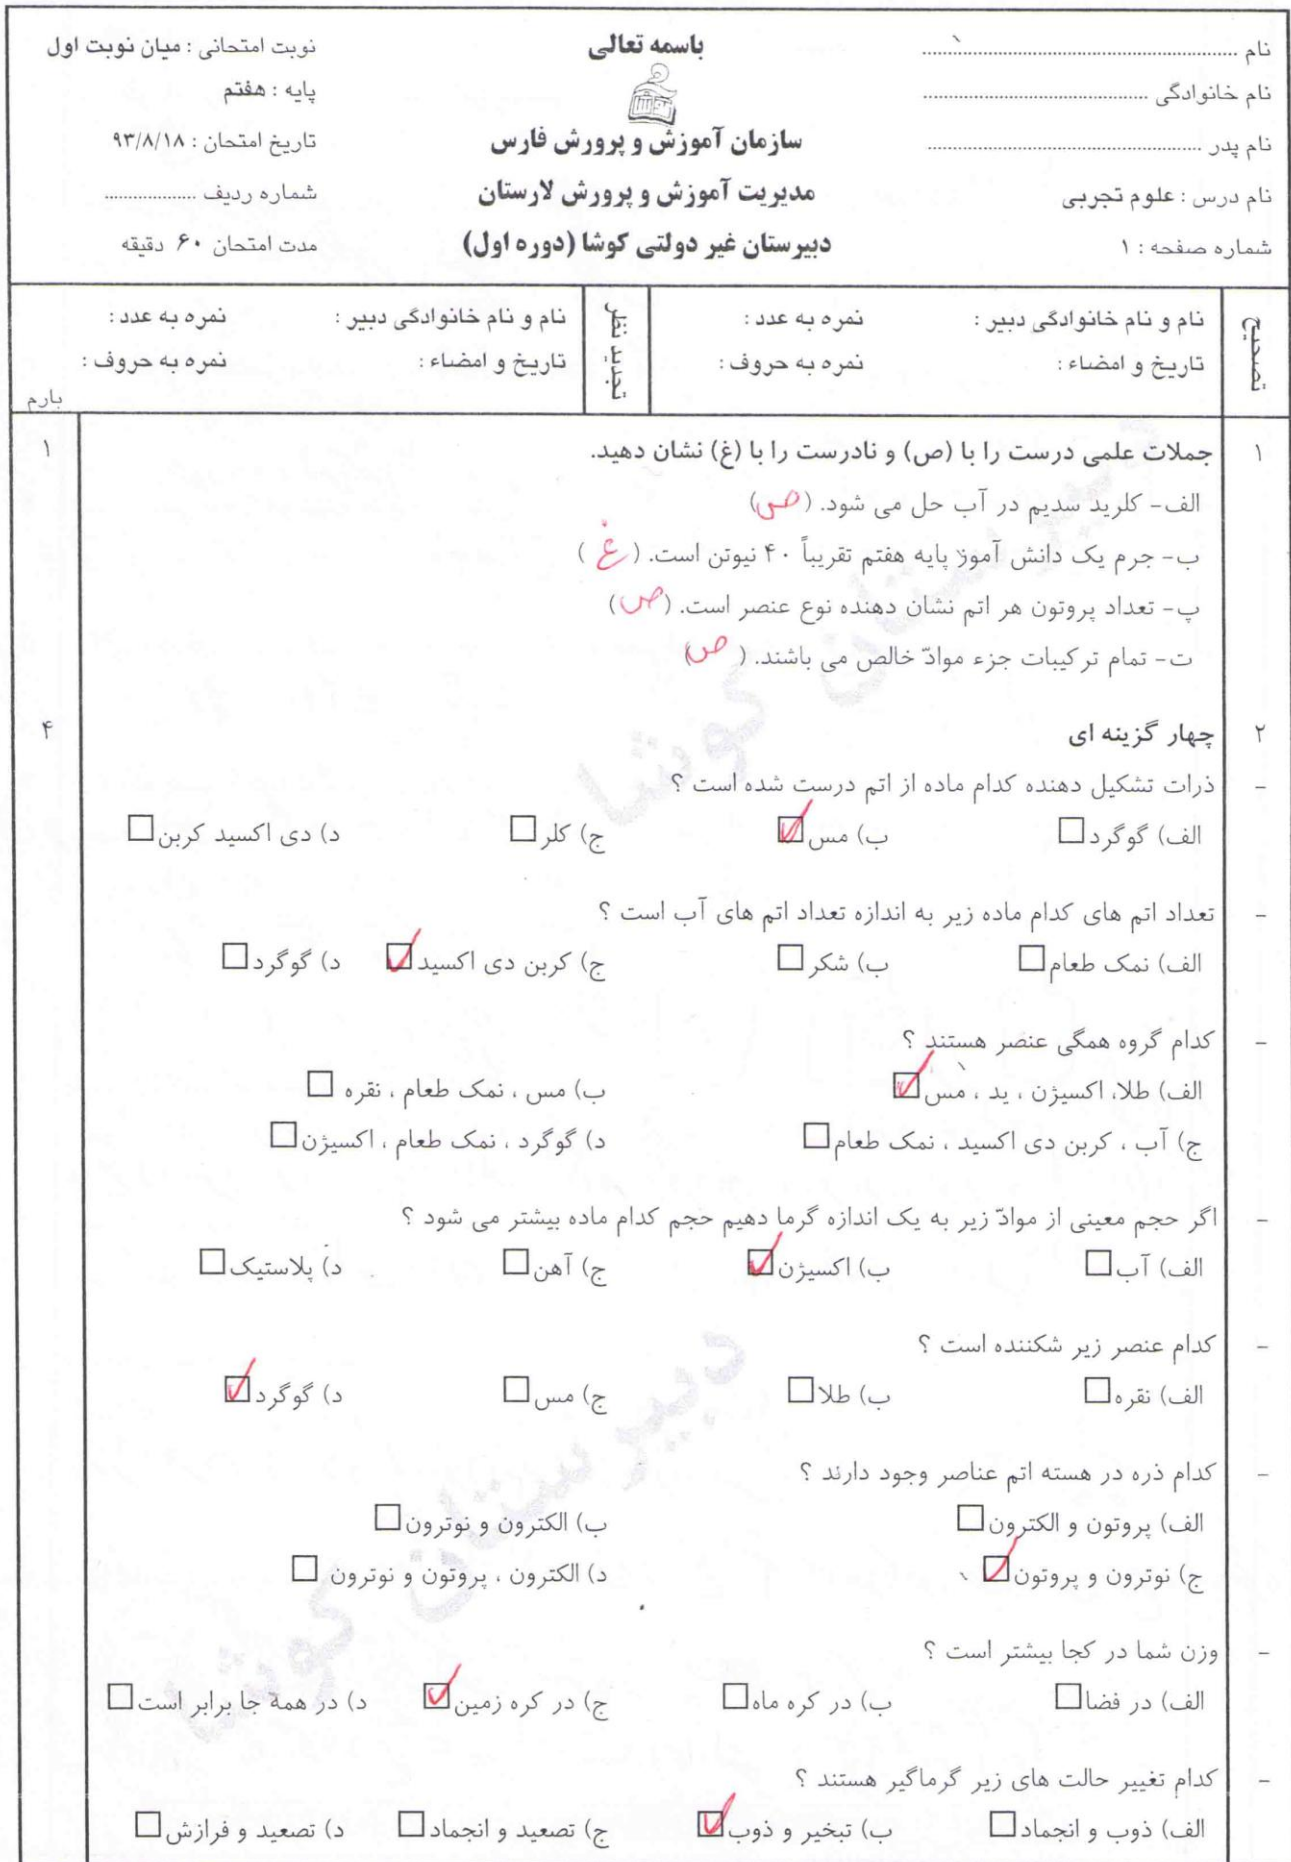 نام ............
باسمه تعالی
نوبت امتحانی : میان نوبت اول
نام خانوادگی ............
پایه : هفتم
نام پدر ............
سازمان آموزش و پرورش فارس
تاریخ امتحان : ۹۳/۸/۱۸
نام درس : علوم تجربی
مدیریت آموزش و پرورش لارستان
شماره ردیف ............
شماره صفحه : ۱
دبیرستان غیر دولتی کوشا (دوره اول)
مدت امتحان ۶۰ دقیقه
تصحیح
نام و نام خانوادگی دبیر : نمره به عدد :
تاریخ و امضاء : نمره به حروف :
تجدید نظر
نام و نام خانوادگی دبیر : نمره به عدد :
تاریخ و امضاء : نمره به حروف :
بارم
۱ جملات علمی درست را با (ص) و نادرست را با (غ) نشان دهید. ۱
الف- کلرید سدیم در آب حل می شود. (ص)
ب- جرم یک دانش آموز پایه هفتم تقریباً ۴۰ نیوتن است. (غ)
پ- تعداد پروتون هر اتم نشان دهنده نوع عنصر است. (ص)
ت- تمام ترکیبات جزء موادّ خالص می باشند. (ص)
۲ چهار گزینه ای ۴
- ذرات تشکیل دهنده کدام ماده از اتم درست شده است ؟
الف) گوگرد☐ ب) مس☑ ج) کلر☐ د) دی اکسید کربن☐
- تعداد اتم های کدام ماده زیر به اندازه تعداد اتم های آب است ؟
الف) نمک طعام☐ ب) شکر☐ ج) کربن دی اکسید☑ د) گوگرد☐
- کدام گروه همگی عنصر هستند ؟
الف) طلا، اکسیژن ، ید ، مس☑ ب) مس ، نمک طعام ، نقره ☐
ج) آب ، کربن دی اکسید ، نمک طعام☐ د) گوگرد ، نمک طعام ، اکسیژن☐
- اگر حجم معینی از موادّ زیر به یک اندازه گرما دهیم حجم کدام ماده بیشتر می شود ؟
الف) آب☐ ب) اکسیژن☑ ج) آهن☐ د) پلاستیک☐
- کدام عنصر زیر شکننده است ؟
الف) نقره☐ ب) طلا☐ ج) مس☐ د) گوگرد☑
- کدام ذره در هسته اتم عناصر وجود دارند ؟
الف) پروتون و الکترون☐ ب) الکترون و نوترون☐
ج) نوترون و پروتون☑ د) الکترون ، پروتون و نوترون ☐
- وزن شما در کجا بیشتر است ؟
الف) در فضا☐ ب) در کره ماه☐ ج) در کره زمین☑ د) در همه جا برابر است☐
- کدام تغییر حالت های زیر گرماگیر هستند ؟
الف) ذوب و انجماد☐ ب) تبخیر و ذوب☑ ج) تصعید و انجماد☐ د) تصعید و فرازش☐
دبیرستان کوشا
دبیرستان کوشا